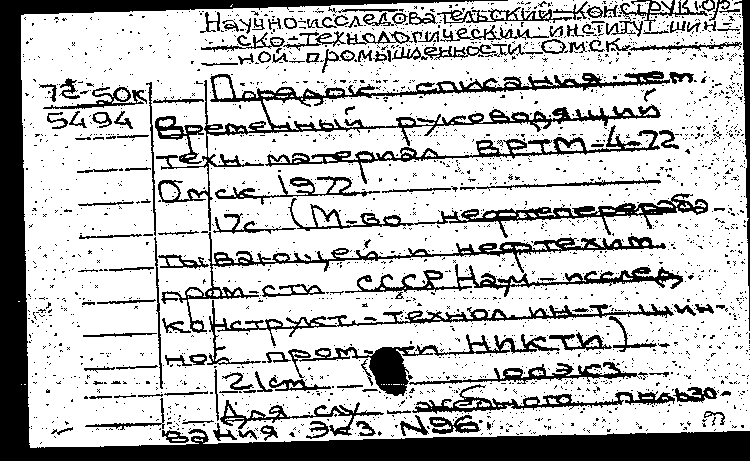 Научно-исследовательский конструктор-
ско-технологический институт шин-
ной промышленности Омск
72-50к
5494
Порядок списания тем.
Временный руководящий
техн. материал ВРТМ-4-72.
Омск, 1972.
17с. (М-во нефтеперерабо-
тывающей и нефтехим.
пром-сти СССР Науч.-исслед.
конструкт.-технол. ин-т. шин-
ной пром-сти НИКТИ)
21см. 100экз.
Для служебного пользо-
вания. Экз. N96.